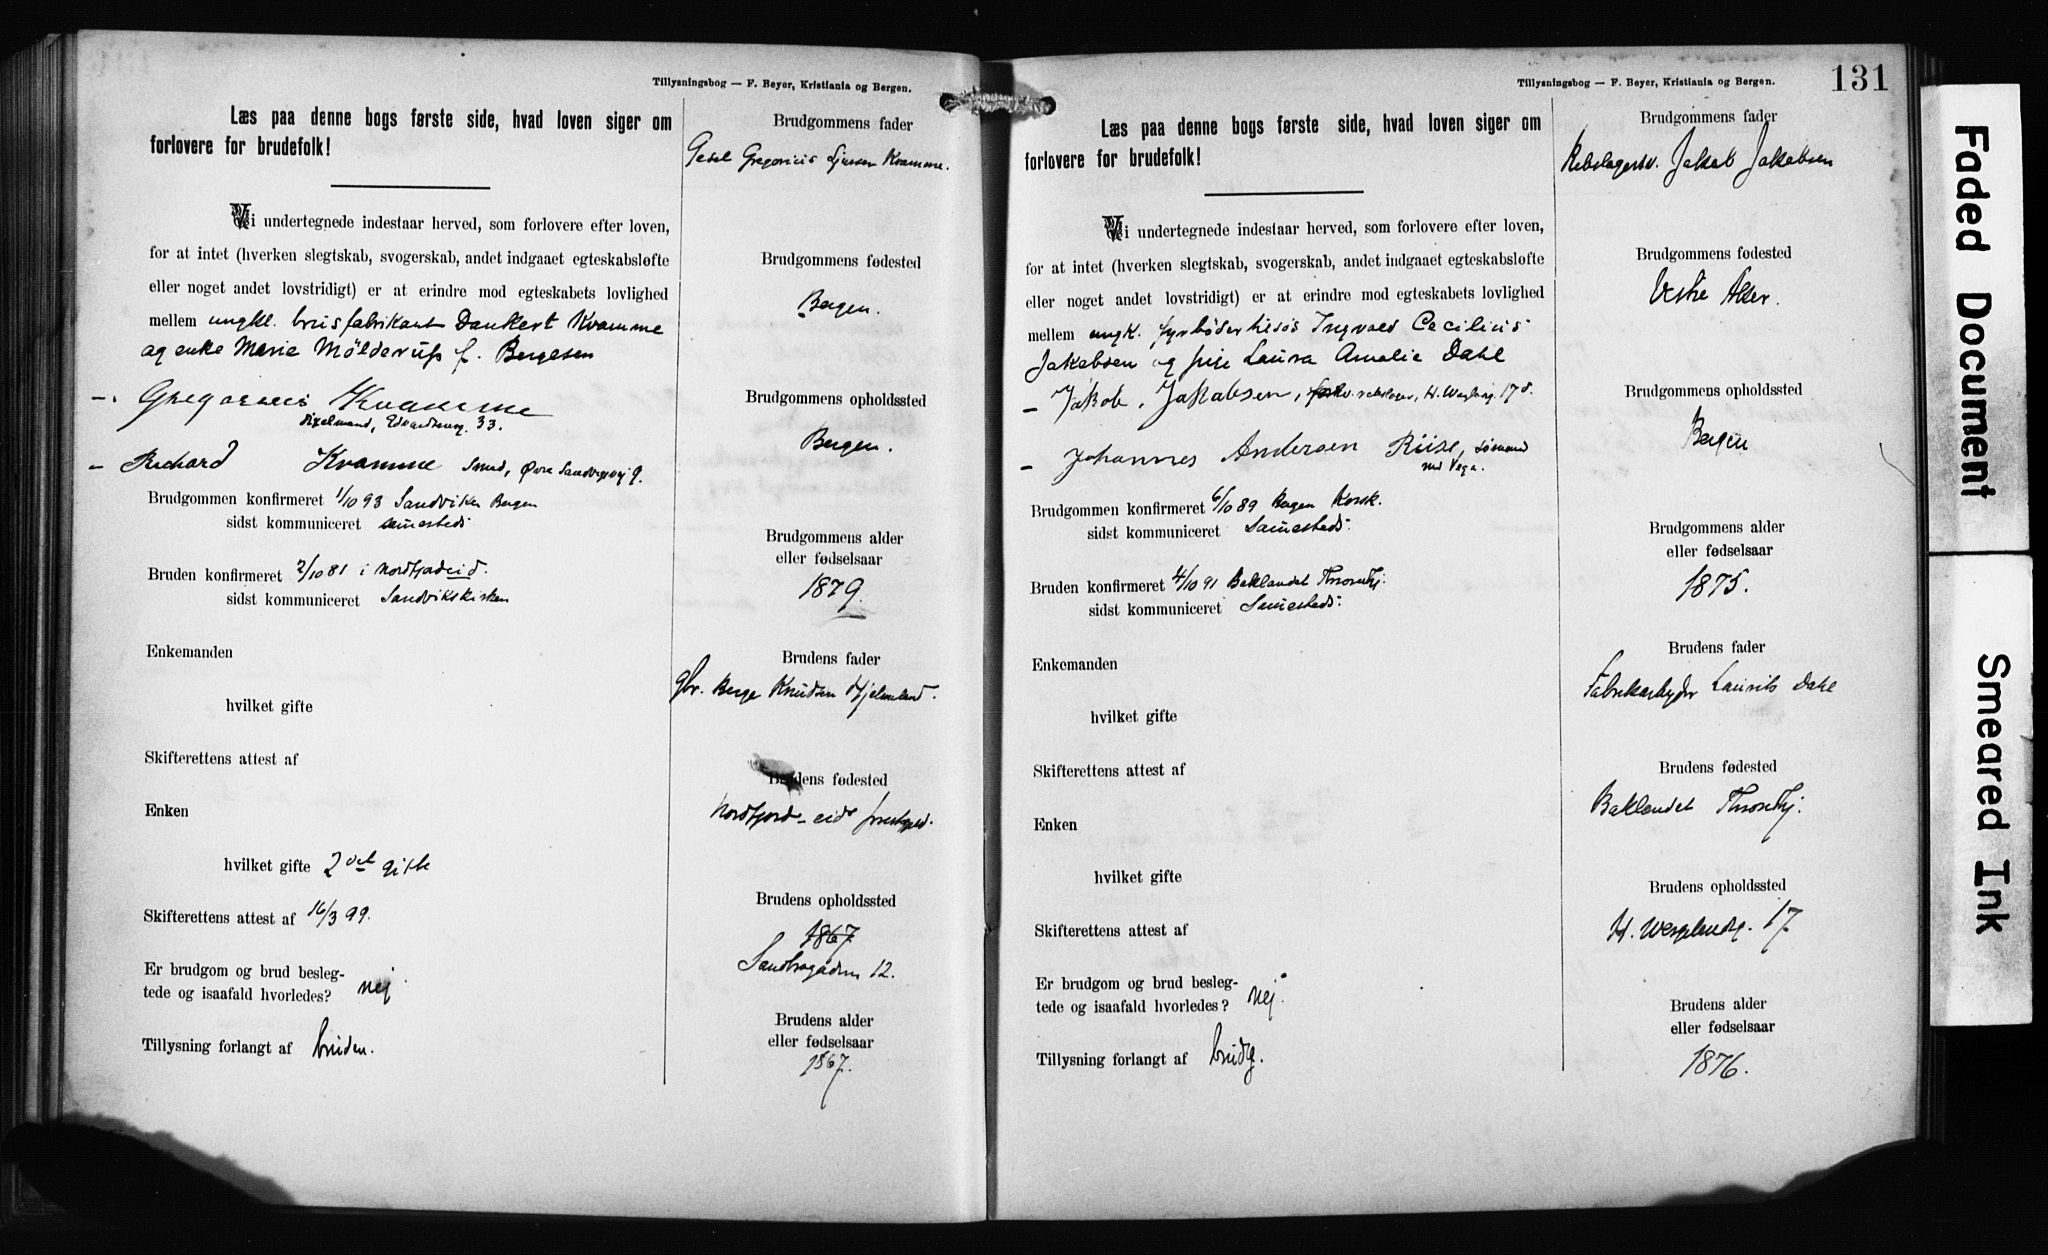 Tillysningsbog — F. Beyer, Kristiania og Bergen.
Læs paa denne bogs første side, hvad loven siger om
forlovere for brudefolk!
Vi undertegnede indestaar herved, som forlovere efter loven,
for at intet (hverken slegtskab, svogerskab, andet indgaaet egteskabsløfte
eller noget andet lovstridigt) er at erindre mod egteskabets lovlighed
mellem ungkl. brusfabrikant Dankert Kvamme
og enke Marie Mölderup f. Bergesen
Kvamme
33.
Richard Kvamme Smed, Øvre Sandvigsvej 9.
Brudgommen konfirmeret 1/10 93 Sandviken Bergen
sidst kommuniceret samesteds
Bruden konfirmeret 2/10 81 i Nordfjordeid.
sidst kommuniceret Sandvikskirken
Enkemanden
hvilket gifte
Skifterettens attest af
Enken
hvilket gifte 2det gifte
Skifterettens attest af 16/3 99.
Er brudgom og brud besleg-
tede og isaafald hvorledes? nej
Tillysning forlangt af bruden.
Brudgommens fader
Gregorius Kvamme.
Brudgommens fødested
Bergen.
Brudgommens opholdssted
Bergen.
Brudgommens alder
eller fødselsaar
1879.
Brudens fader
gbr. Berge Knudsen Hjelmeland.
Brudens fødested
Nordfjord-eid
Brudens opholdssted
1867.
Sandbrogaden 12.
Brudens alder
eller fødselsaar
1867.
Tillysningsbog — F. Beyer, Kristiania og Bergen.
131
Læs paa denne bogs første side, hvad loven siger om
forlovere for brudefolk!
Vi undertegnede indestaar herved, som forlovere efter loven,
for at intet (hverken slegtskab, svogerskab, andet indgaaet egteskabsløfte
eller noget andet lovstridigt) er at erindre mod egteskabets lovlighed
mellem ungk. fyrbøder tilsøs Ingvald Cecilius
Jakobsen og pige Laura Amalie Dahl
Jakob Jakobsen, 17
Johannes Andersen Riise, sømand
ved Vega.
Brudgommen konfirmeret 6/10 89 Bergen Korsk.
sidst kommuniceret Samesteds.
Bruden konfirmeret 4/10 91 Baklandet Throndhj.
sidst kommuniceret Samesteds.
Enkemanden
hvilket gifte
Skifterettens attest af
Enken
hvilket gifte
Skifterettens attest af
Er brudgom og brud besleg-
tede og isaafald hvorledes? nej.
Tillysning forlangt af brudg.
Brudgommens fader
Jakob Jakobsen
Brudgommens fødested
Vestre Aker.
Brudgommens opholdssted
Bergen
Brudgommens alder
eller fødselsaar
1875.
Brudens fader
Fabrikarbejder Laurits Dahl
Brudens fødested
Baklandet Throndhj.
Brudens opholdssted
H. Wergelandsg. 17.
Brudens alder
eller fødselsaar
1876.
Faded Document
Smeared Ink